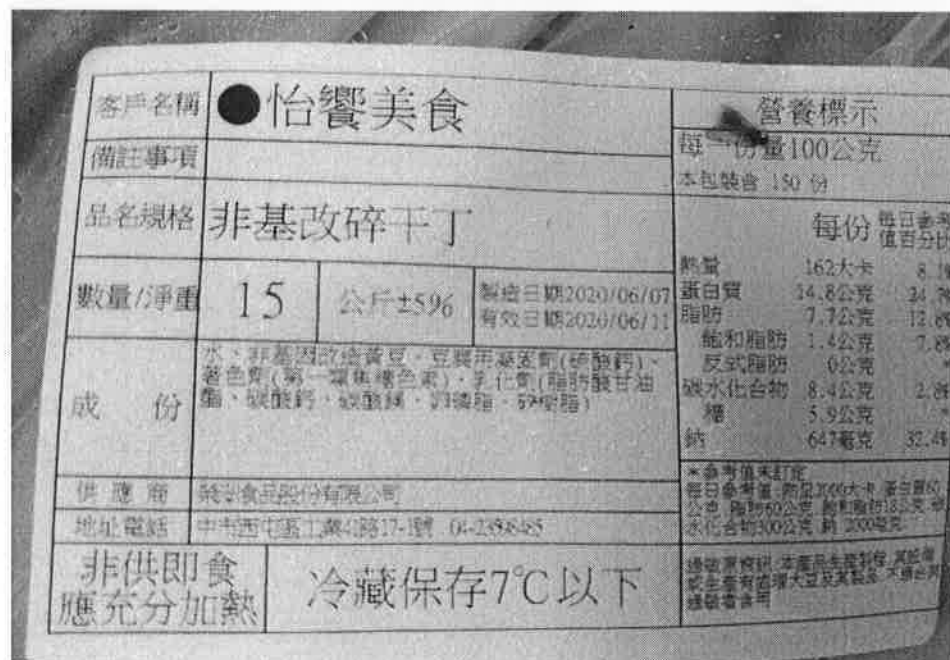 客戶名稱 ●怡饗美食
備註事項
品名規格 非基改碎干丁
數量/淨重 15 公斤±5% 製造日期2020/06/07
有效日期2020/06/11
成 份 水、非基因改造黃豆、豆腐用凝固劑(硫酸鈣)、
著色劑(第一類焦糖色素)、乳化劑(脂肪酸甘油
酯、碳酸鈣、碳酸鎂、卵磷脂、矽樹脂)
供應商 食品股份有限公司
地址電話 中市西屯區工業
非供即食
應充分加熱
冷藏保存7℃以下
營養標示
每一份量100公克
本包裝含 150 份
每份 每日參考
值百分比
熱量 162大卡
蛋白質 14.8公克
脂肪 7.7公克
飽和脂肪 1.4公克
反式脂肪 0公克
碳水化合物 8.4公克
糖 5.9公克
鈉 647毫克
*參考值未訂定
每日參考值:熱量2000大卡、蛋白質60
公克、脂肪60公克、飽和脂肪18公克、碳
水化合物300公克、鈉 2000毫克
過敏原資訊:本產品生產製程
大豆及其製品
過敏者食用